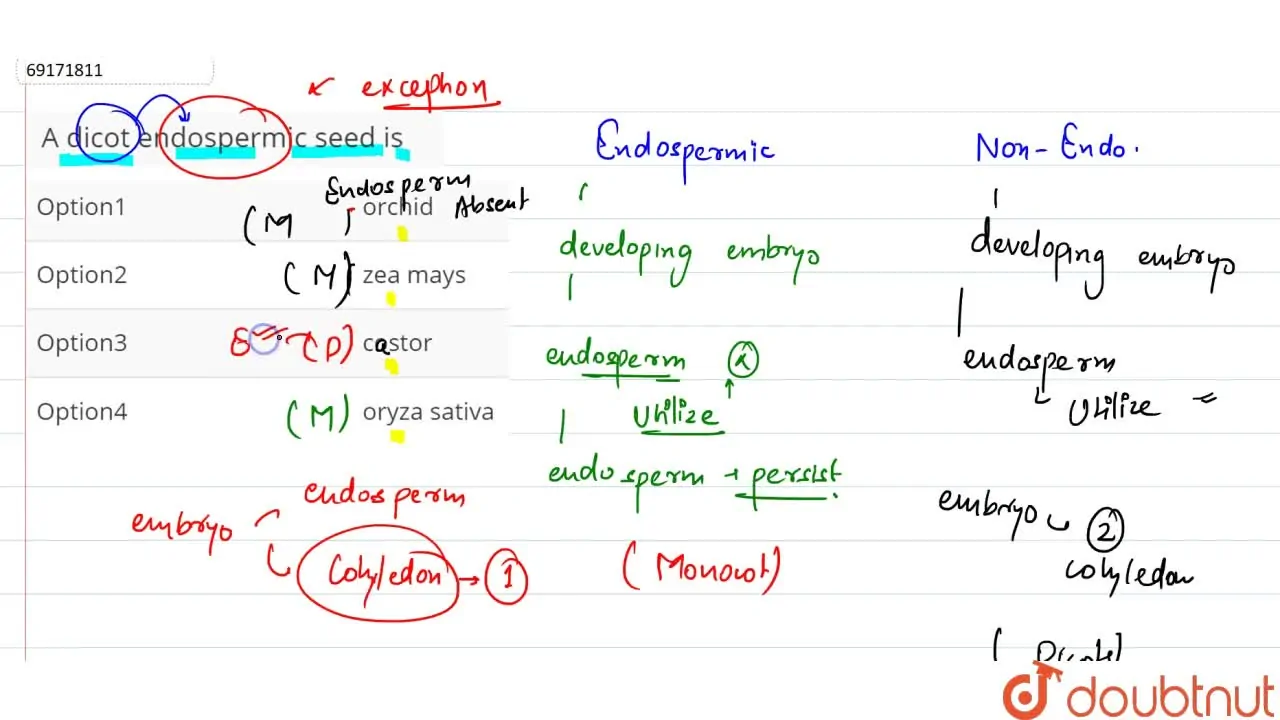 69171811
exception
A dicot endospermic seed is
Endospermic
Non-Endo.
Endosperm
Option1 (M ) orchid Absent
developing embryo
developing embryo
Option2 (M) zea mays
Option3 (D) castor
endosperm
endosperm
Utilize
Utilize
Option4 (M) oryza sativa
endosperm → persist.
endosperm
embryo
Cotyledon → 1
(Monocot)
embryo 2
cotyledon
doubtnut